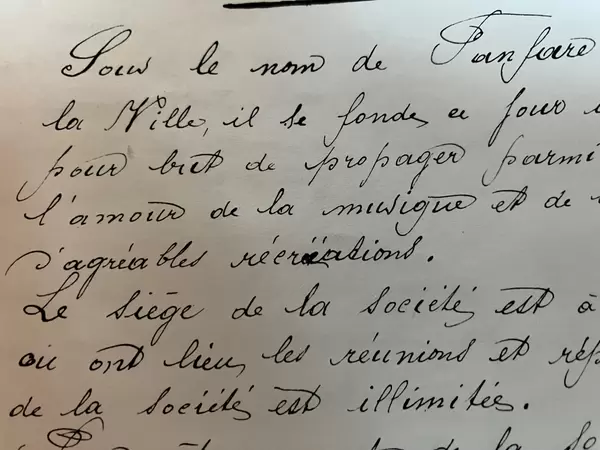 Sous le nom de Fanfare
la Ville, il se fonde, ce jour
pour but de propager parmi
l'amour de la musique et de
d'agréables récréations.
Le siège de la société, est à
où ont lieu, les réunions et rép
de la société, est illimitée.
de la so